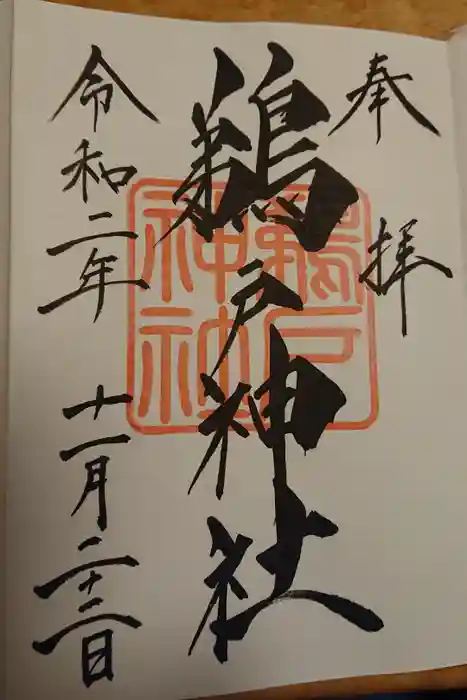 奉拝
鵜戸神社
令和二年 十一月二十二日
鵜戸
神社